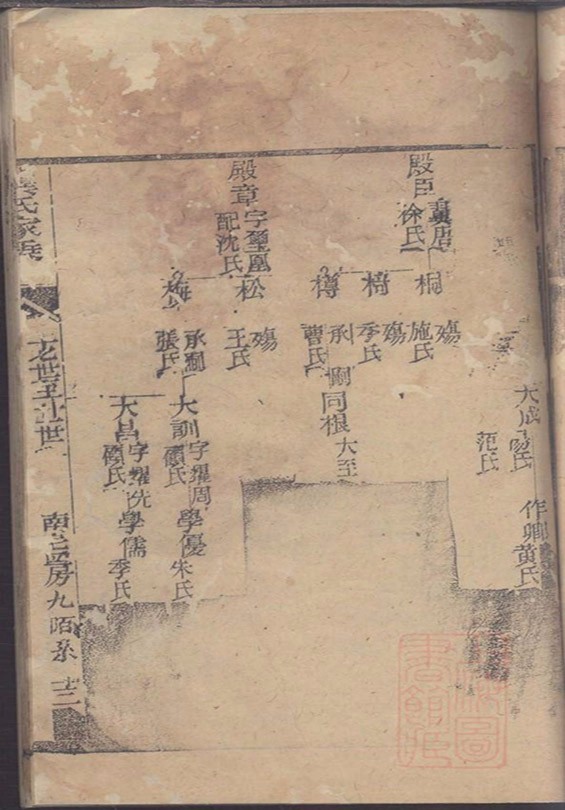 大成
范氏
作卿 黃氏
殿臣
徐氏
桐 殤
施氏
椅 殤
季氏
樽 承嗣同根
曹氏
大至
殿章 字璽凰
配沈氏
松 殤
王氏
梅 承嗣
張氏
大訓 字耀周
顧氏
學優
朱氏
大昌 字耀先
顧氏
學儒
季氏
氏家乘
世至廿世
南邑房九陌系 十二